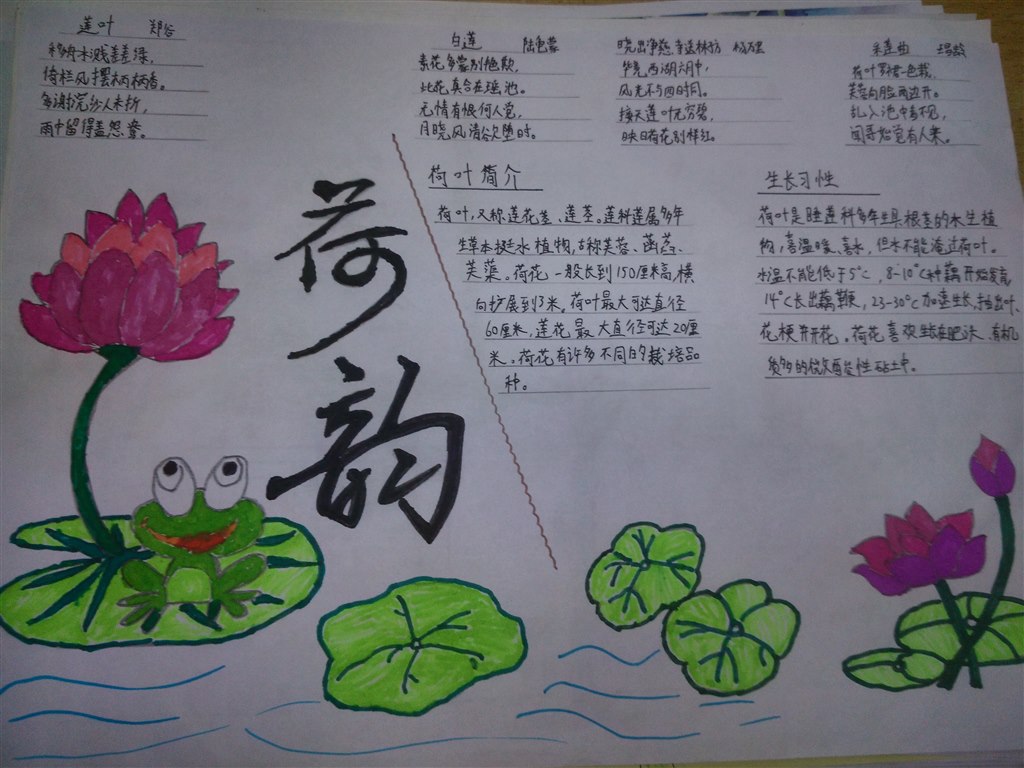 莲叶 郑谷
移舟水溅差差绿，
倚栏风摆柄柄香。
多谢浣沙人未折，
雨中留得盖鸳鸯。
白莲 陆龟蒙
素花多蒙别艳欺，
此花真合在瑶池。
无情有恨何人觉，
月晓风清欲堕时。
晓出净慈寺送林子方 杨万里
毕竟西湖六月中，
风光不与四时同。
接天莲叶无穷碧，
映日荷花别样红。
采莲曲 王昌龄
荷叶罗裙一色裁，
芙蓉向脸两边开。
乱入池中看不见，
闻哥始觉有人来。
荷韵
荷叶简介
荷叶，又称莲花茎、莲茎。莲科莲属多年
生草本挺水植物，古称芙蓉、菡萏、
芙蕖。荷花，一般长到150厘米高，横
向扩展到3米。荷叶最大可达直径
60厘米，莲花最大直径可达20厘
米。荷花有许多不同的栽培品
种。
生长习性
荷叶是睡莲科多年生具根茎的水生植
物，喜温暖、喜水，但水不能淹过荷叶。
水温不能低于5°C，8-10°C种藕开始发芽，
14°C长出藕鞭，23-30°C加速生长，抽出叶、
花梗并开花。荷花喜欢生长在肥沃、有机
质多的微酸性粘土中。